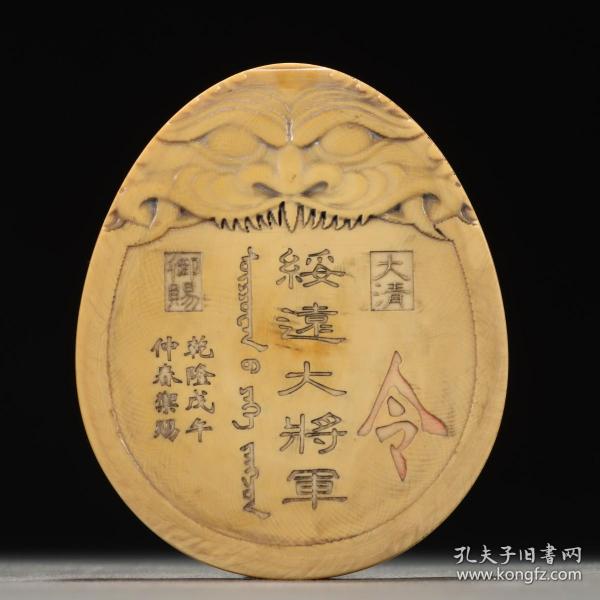 大清
令
綏遠大將軍
御賜
乾隆戊午
仲春禦賜
孔夫子旧書网
www.kongfz.com